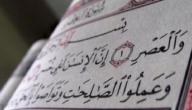 بسم
وَالْعَصْرِ ١ إِنَّ الْإِنسَٰنَ لَفِى
وَعَمِلُوا۟ الصَّٰلِحَٰتِ وَتَوَاصَوْا۟